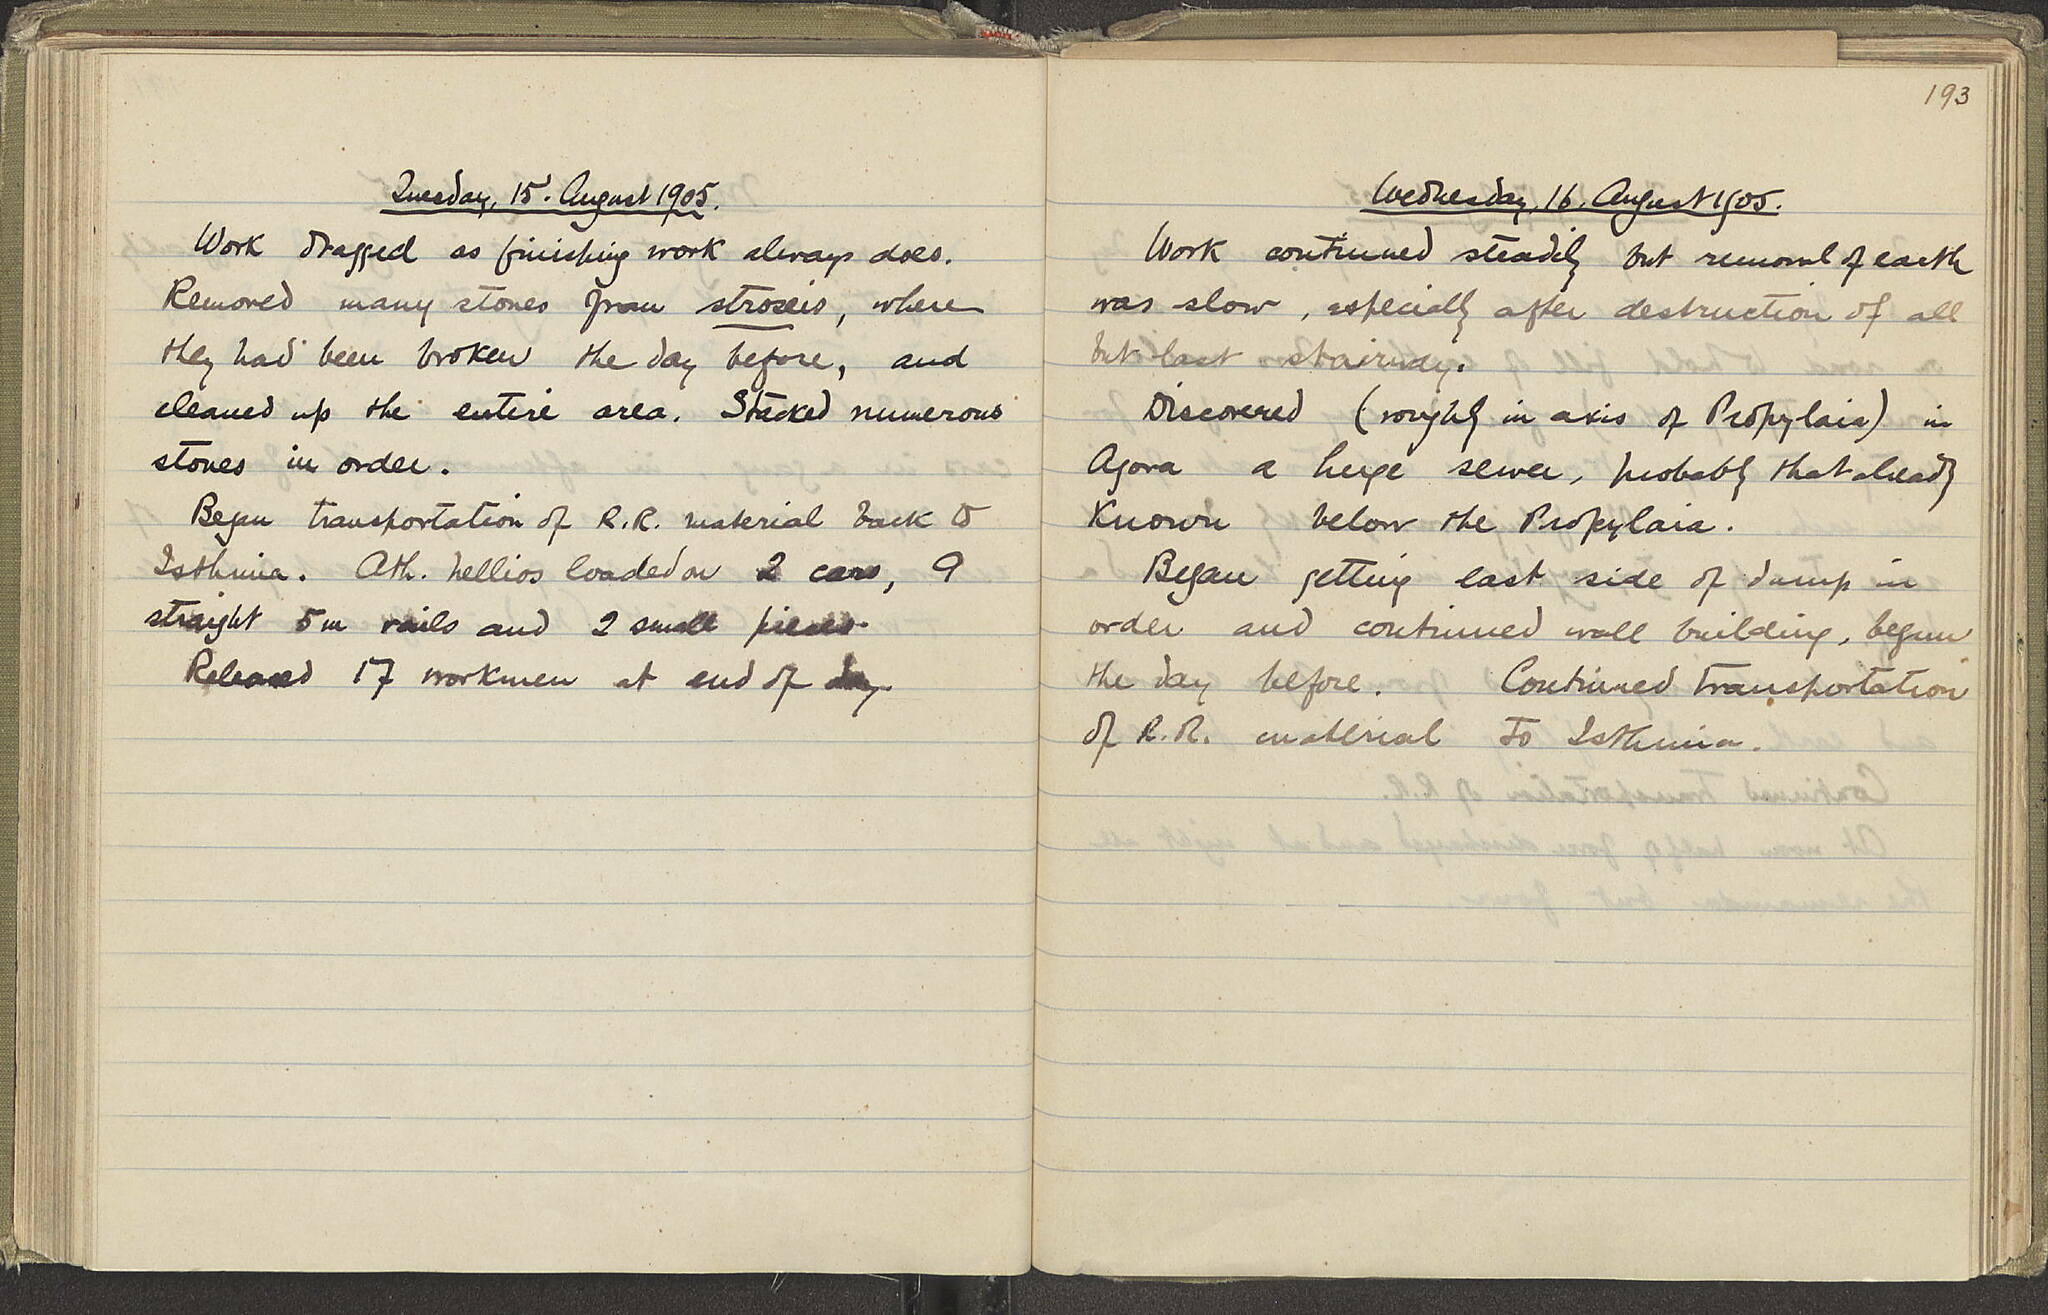 Tuesday, 15. August 1905.
Work dragged as finishing work always does.
Removed many stones from stroseis, where
they had been broken the day before, and
cleaned up the entire area. Stacked numerous
stones in order.
Began transportation of R.R. material back to
Isthmia. Ath. Nellios loaded on 2 cars, 9
straight 5m rails and 2 small pieces.
Released 17 workmen at end of day.
193
Wednesday, 16. August 1905.
Work continued steadily but removal of earth
was slow, especially after destruction of all
but last stairway.
Discovered (roughly in axis of Propylaia) in
Agora a huge sewer, probably that already
known below the Propylaia.
Began getting east side of dump in
order and continued wall building, begun
the day before. Continued transportation
of R.R. material to Isthmia.